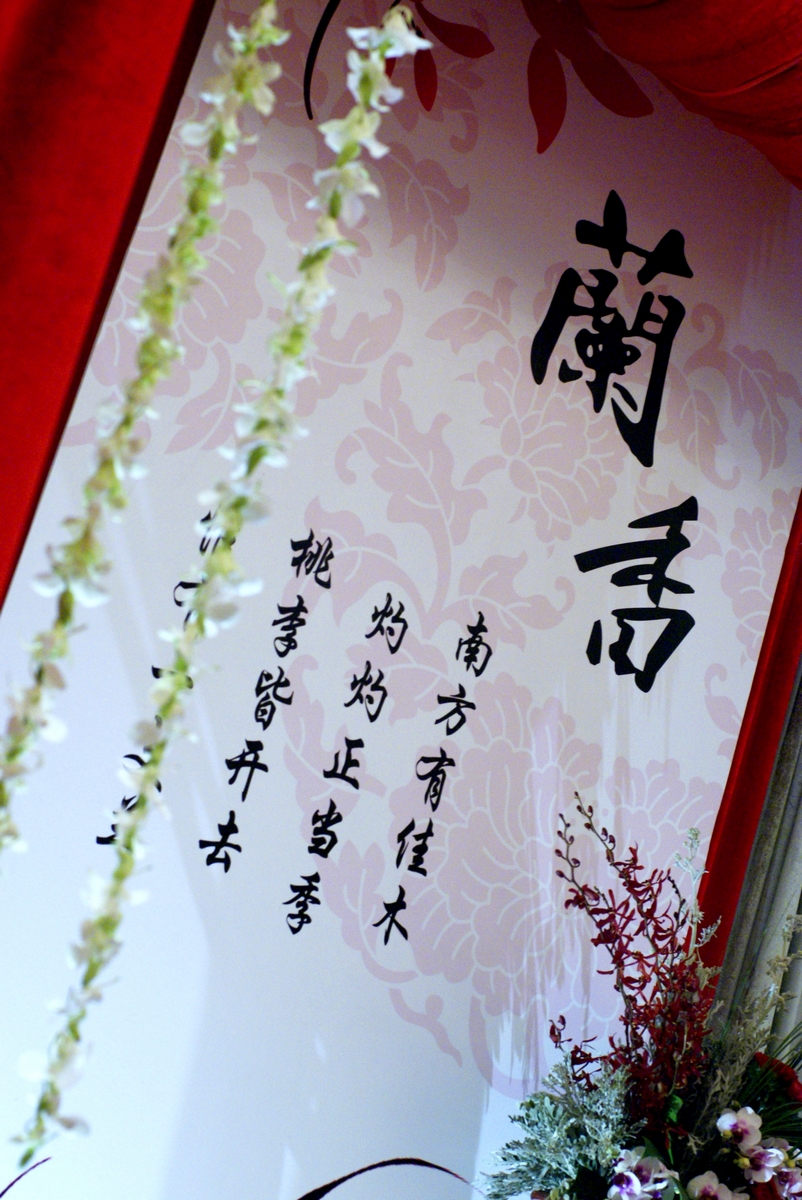 蘭香
南方有佳木
灼灼正当季
桃李皆开去